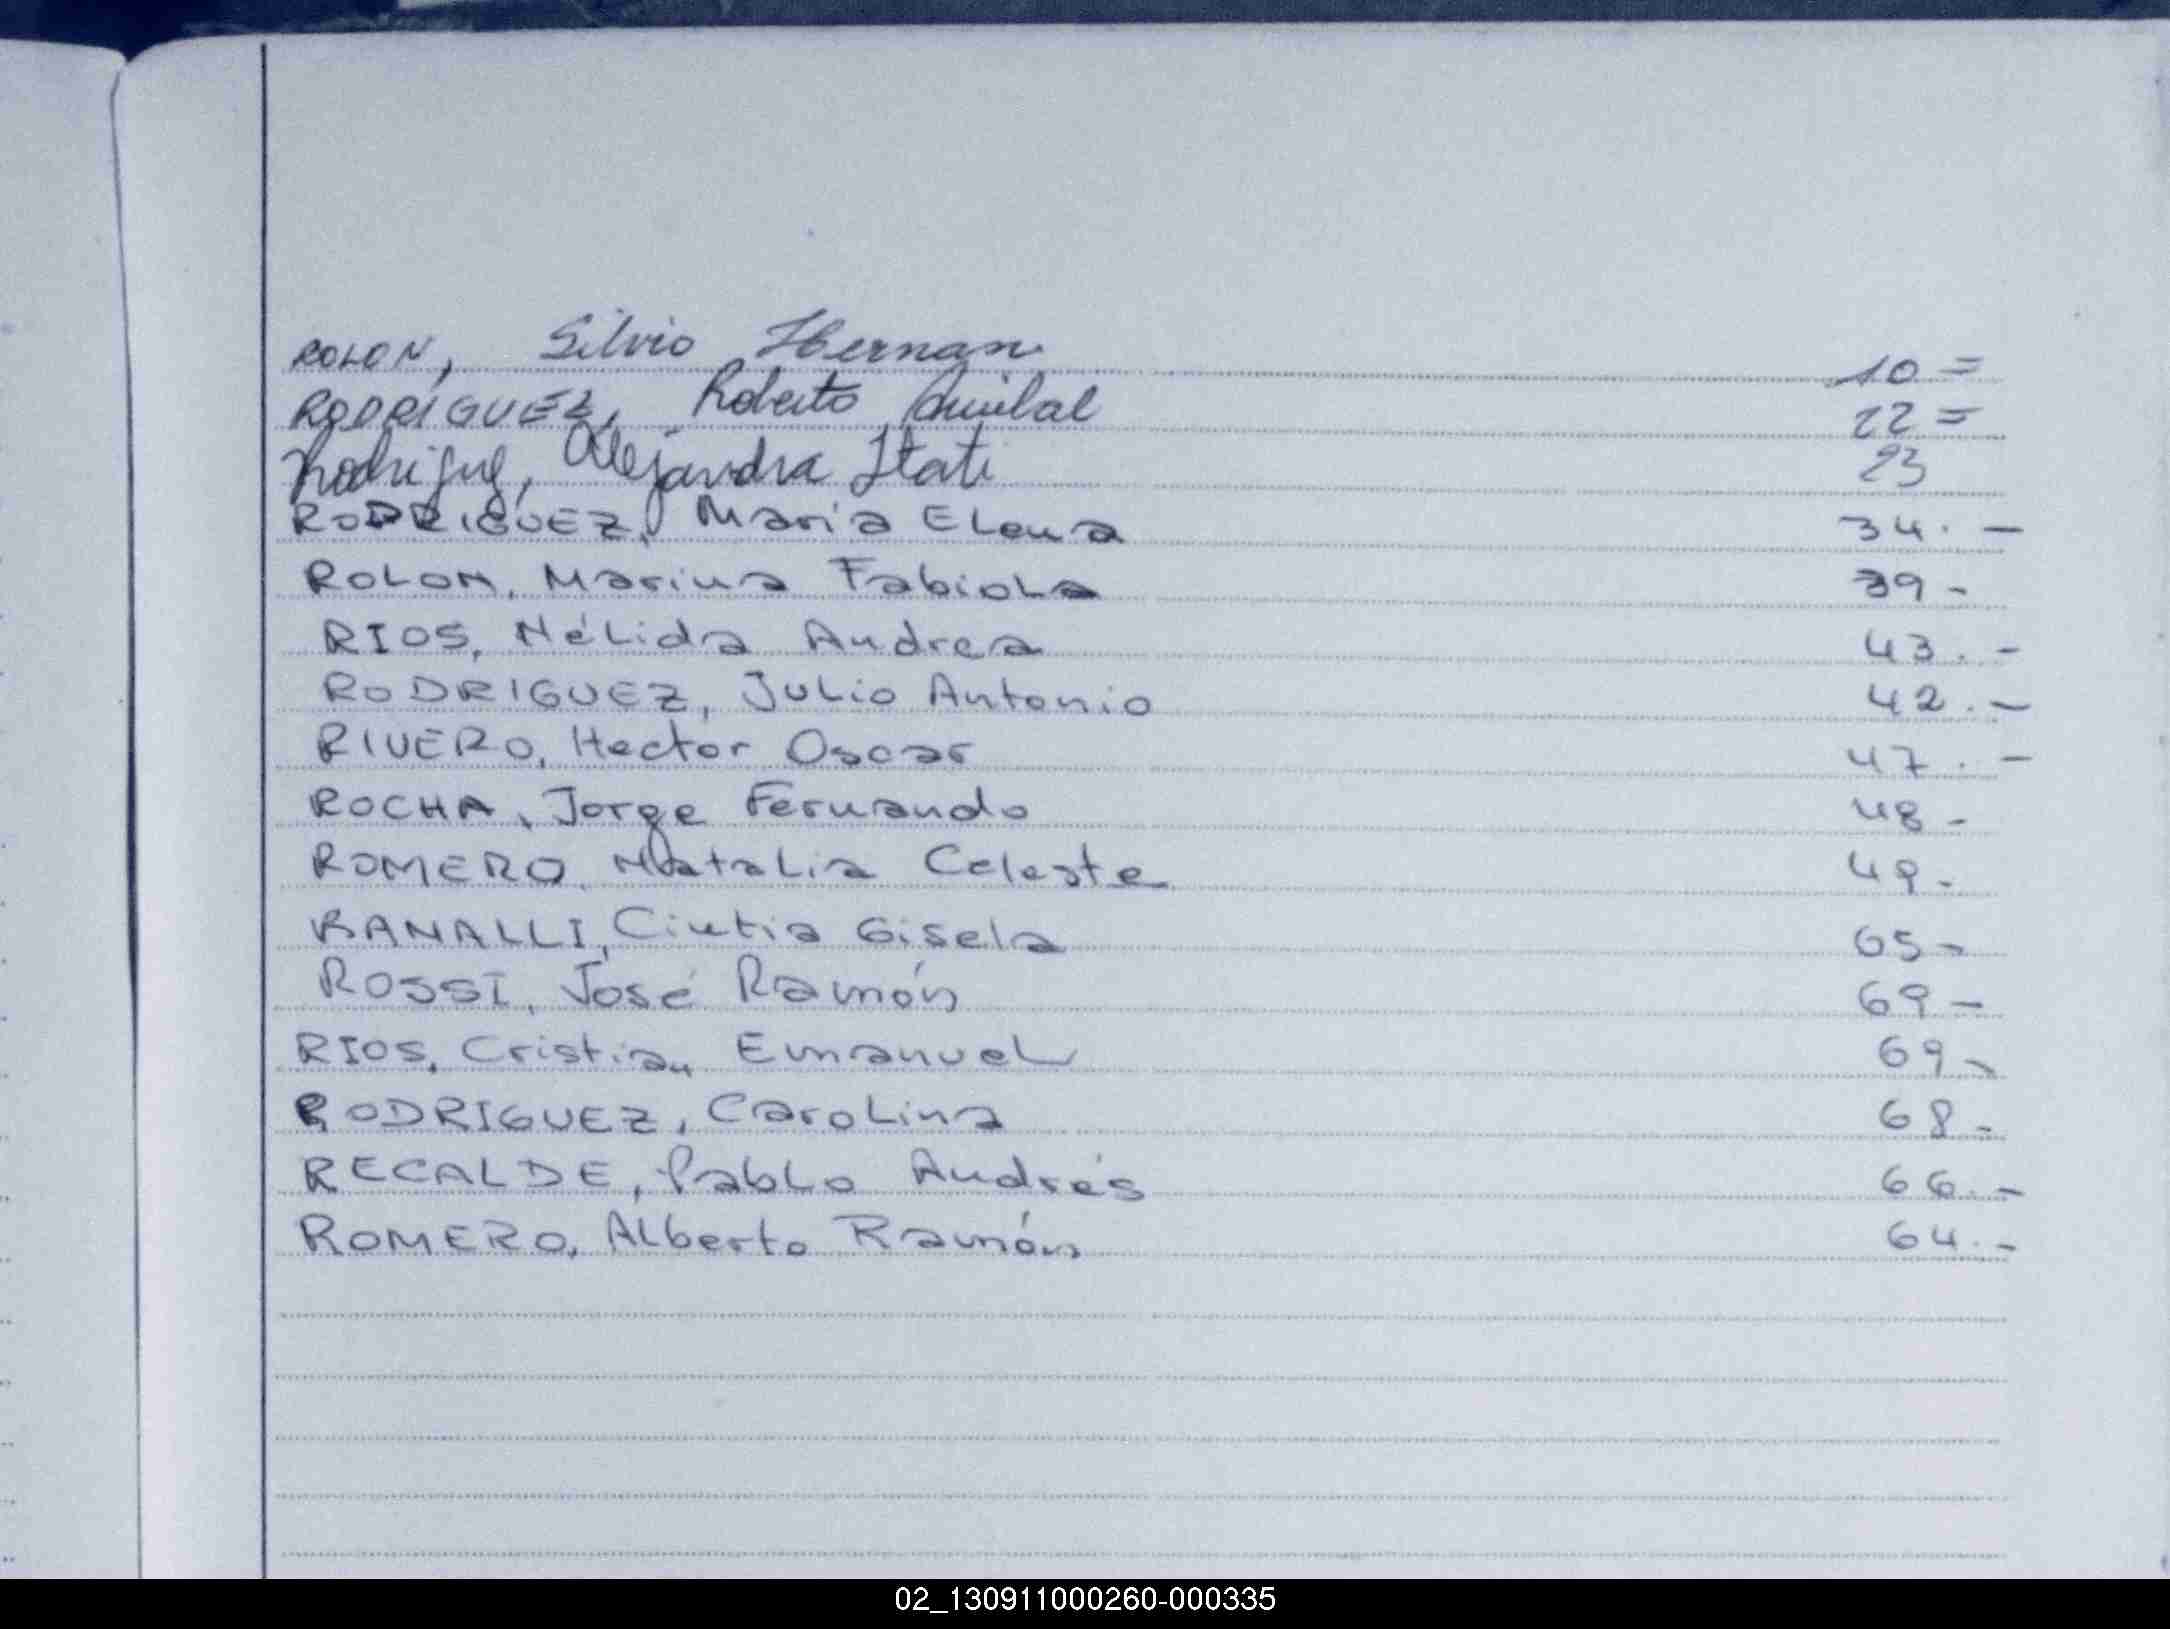 ROLON, Silvio Hernan 10=
RODRIGUEZ, Roberto Anibal 22=
Rodriguez, Alejandra Itati 23
RODRIGUEZ, Maria Elena 34.-
ROLON, Marina Fabiola 39-
RIOS, Nélida Andrea 43.-
RODRIGUEZ, Julio Antonio 42.-
RIVERO, Hector Oscar 47.-
ROCHA, Jorge Fernando 48-
ROMERO, Natalia Celeste 49-
RANALLI, Cintia Gisela 65-
ROSSI, José Ramón 69-
RIOS, Cristian Emanuel 69-
RODRIGUEZ, Carolina 68-
RECALDE, Pablo Andrés 66.-
ROMERO, Alberto Ramón 64.-
02_130911000260-000335